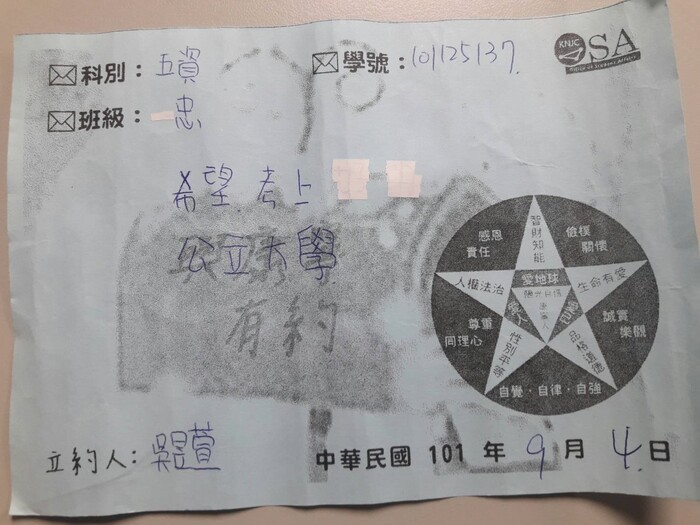 科別：五資
學號：101125137.
KNJC
OSA
Office of Student Affairs
班級：一忠
希望考上
公立大學
有約
智財知能
感恩
責任
儉樸
關懷
人權法治
愛地球
生命有愛
尊重
同理心
誠實
樂觀
性別平等
品格道德
自覺．自律．自強
立約人：吳昱萱
中華民國 101 年 9 月 4 日